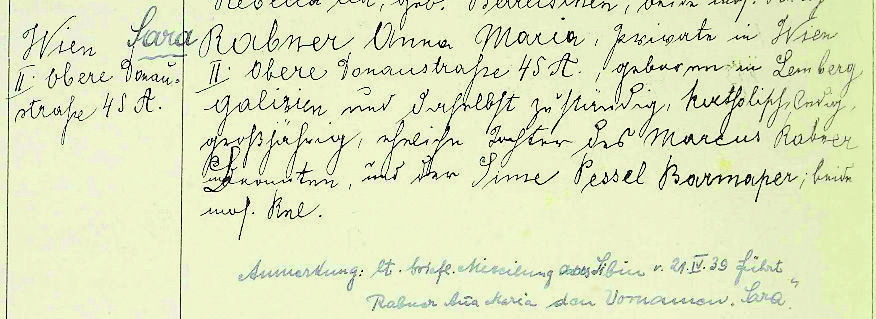 Rebecca ... geb. ... beide mos.
Wien Sara
II. Obere Donau-
straße 45 A.
Rabner Anna Maria, Private in Wien
II. Obere Donaustraße 45 A., geboren in Lemberg
Galizien und daselbst zuständig, katholisch, ledig,
großjährig, eheliche Tochter des Marcus Rabner
Beamten, und der Sime Pessel Barmaper; beide
mos. Rel.
Anmerkung: lt. briefl. Mitteilung v. 21. IV. 39 führt
Rabner Anna Maria den Vornamen „Sara“